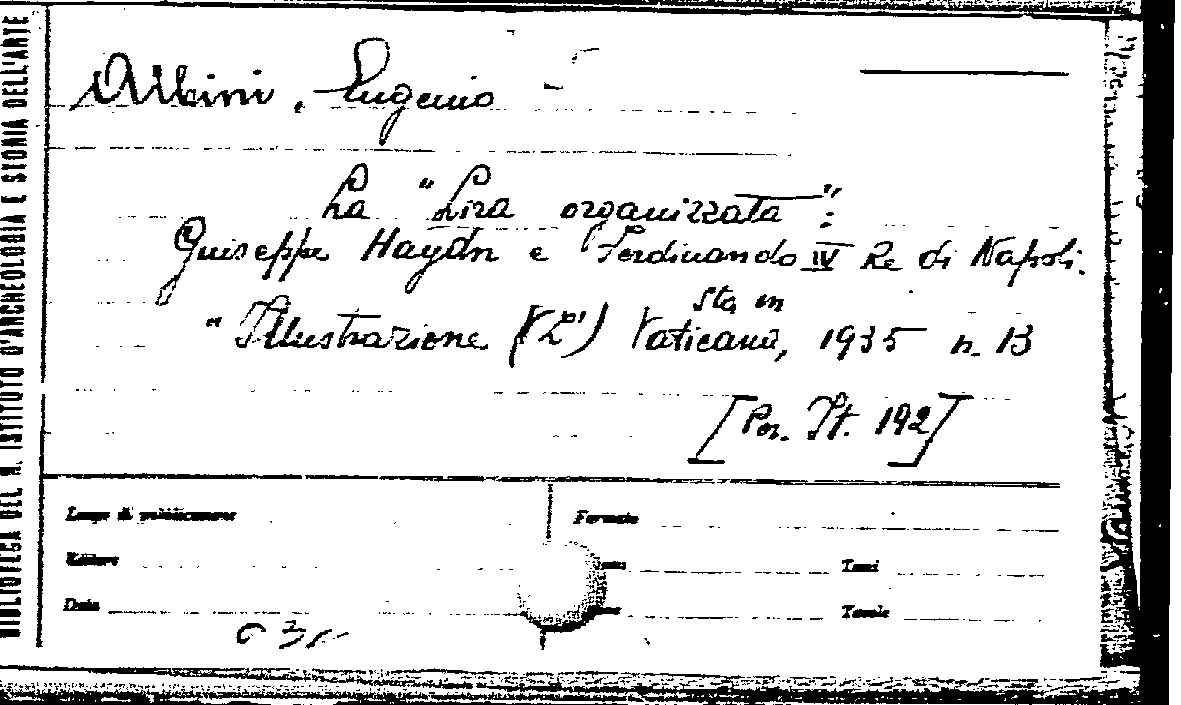 BIBLIOTECA DEL R. ISTITUTO D'ARCHEOLOGIA E STORIA DELL'ARTE
Albini, Eugenio
La "Lira organizzata":
Giuseppe Haydn e Ferdinando IV Re di Napoli.
"Illustrazione (L') Vaticana, 1935 n. 13
[Per. It. 192]
Luogo di pubblicazione
Formato
Editore
Tomi
Data
Tavole